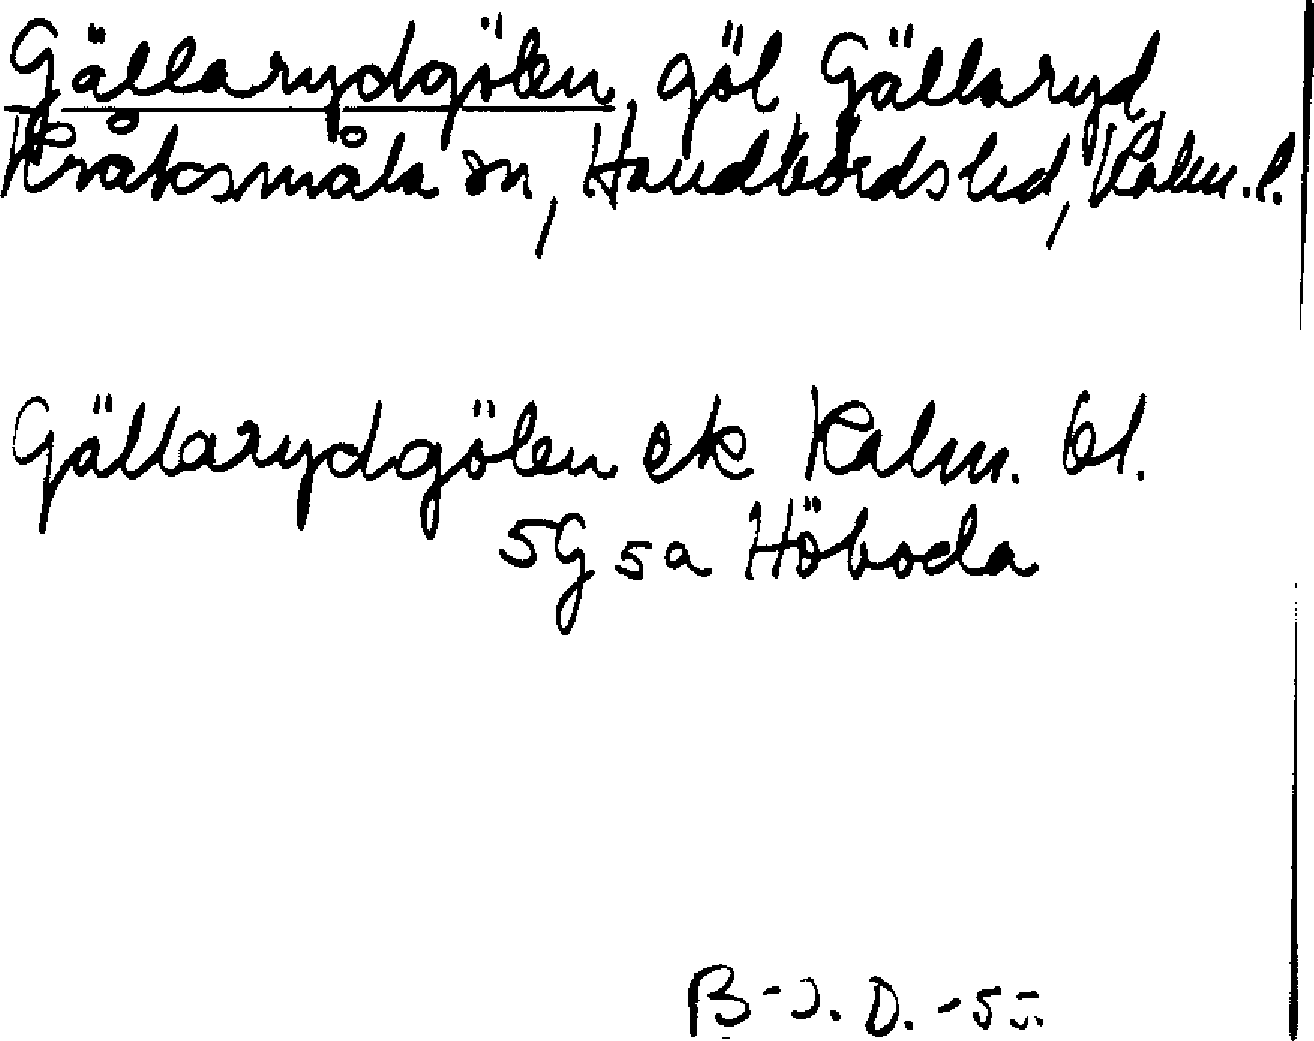 Gällarydgölen, göl Gällaryd,
Kråksmåla sn, Handbörds hd, Kalm. l.
Gällarydgölen ek Kalm. bl.
5G 5a Höboda
B-J. D. -55.